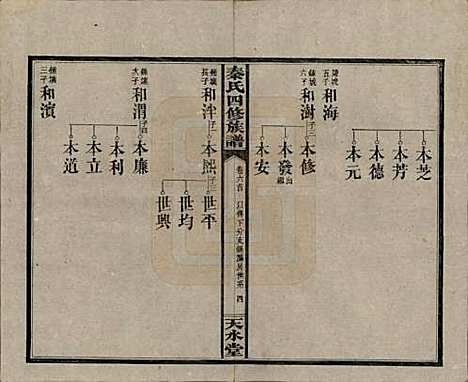 陵城
五子
和海
本芝
本芳
本德
本元
六子
和澍
子三
本修
本發
出繼
本安
秦氏四修族譜
卷六首
四
天水堂
長子
和泮
子一
本熙
子三
世平
世均
世興
次子
和渭
子四
本廉
本利
本立
本道
三子
和濱